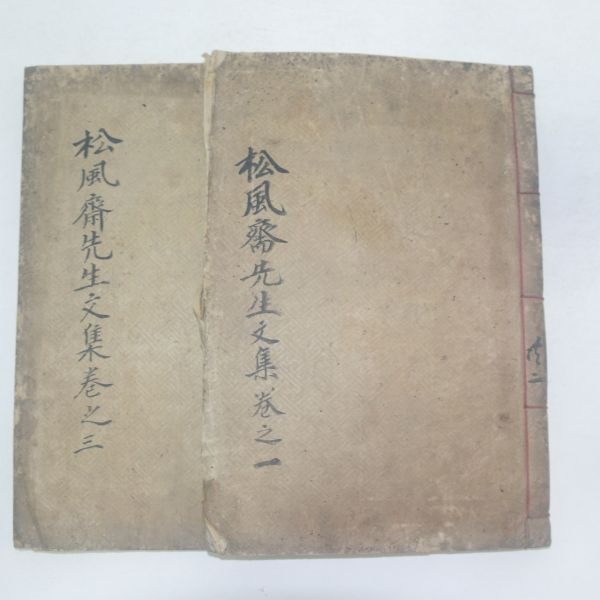 松風齋先生文集卷之一
松風齋先生文集卷之三
共二